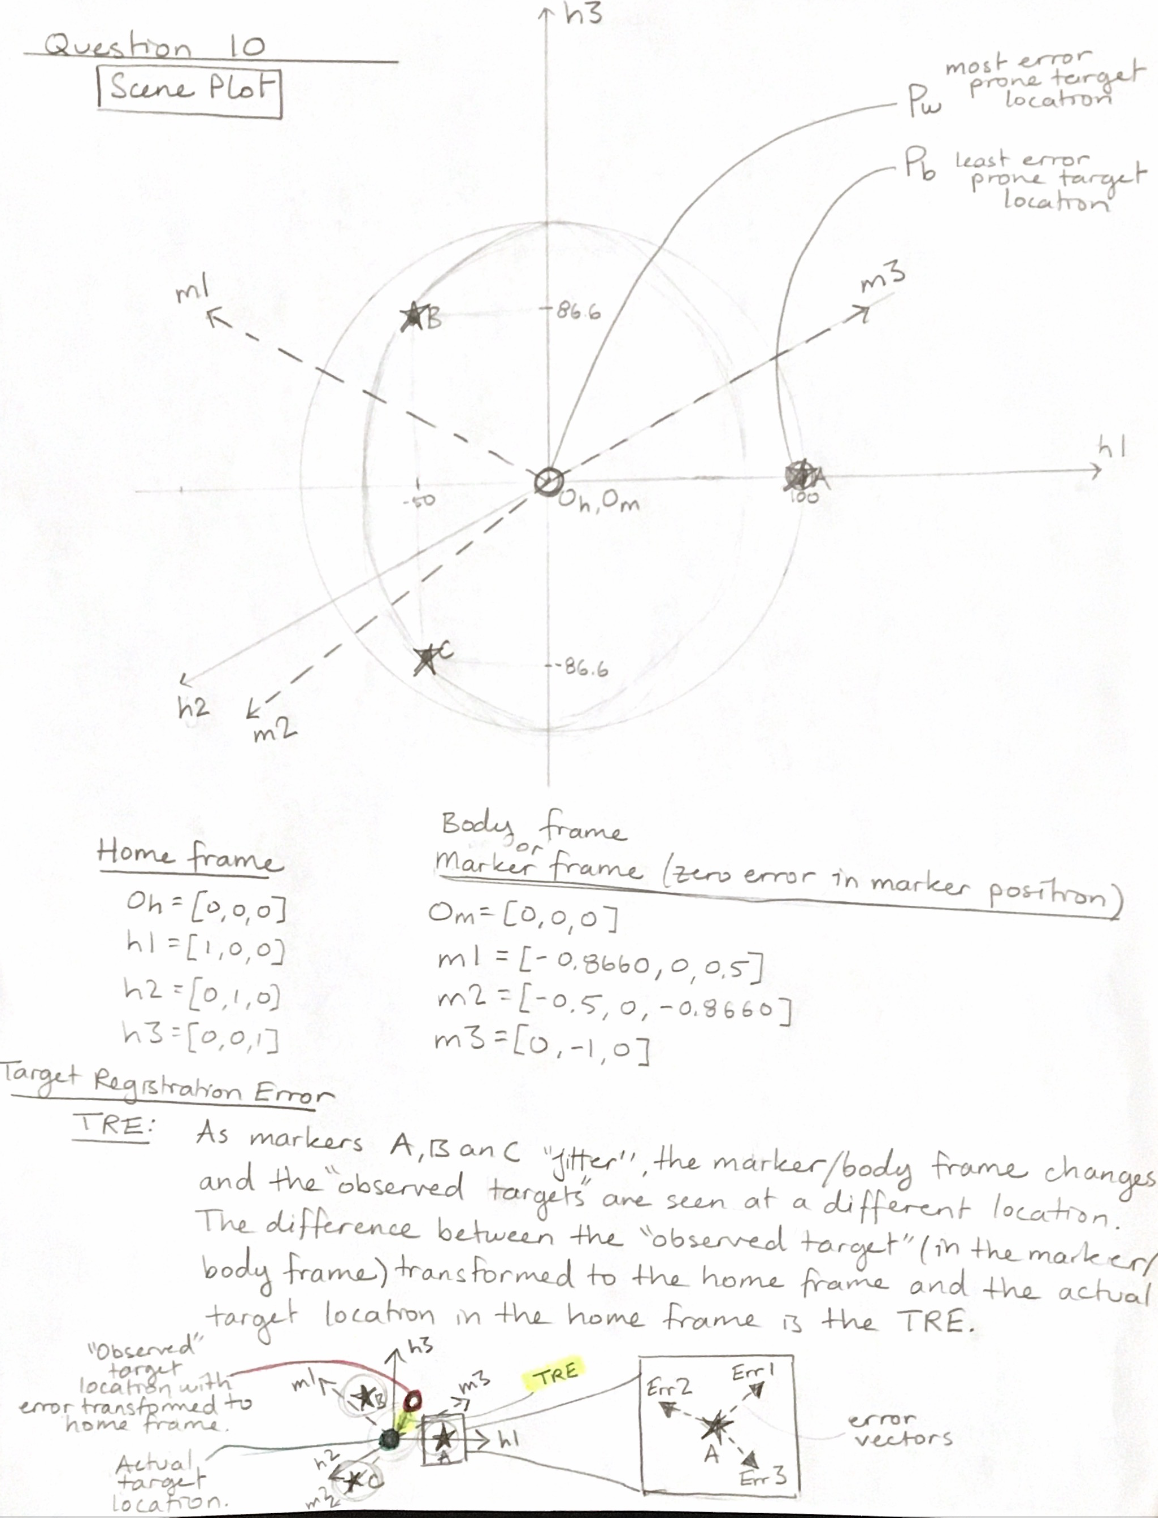 Question 10
Scene Plot
h3
most error
prone target
location
Pw
Pb
least error
prone target
location
m1
m3
B
86.6
h1
-50
Oh, Om
A
100
C
-86.6
h2
m2
Home frame
Oh = [0,0,0]
h1 = [1,0,0]
h2 = [0,1,0]
h3 = [0,0,1]
Body frame
or
Marker frame (zero error in marker position)
Om = [0,0,0]
m1 = [-0.8660, 0, 0.5]
m2 = [-0.5, 0, -0.8660]
m3 = [0, -1, 0]
Target Registration Error
TRE:
As markers A, B an C "jitter", the marker/body frame changes
and the "observed targets" are seen at a different location.
The difference between the "observed target" (in the marker/
body frame) transformed to the home frame and the actual
target location in the home frame is the TRE.
"Observed"
target
location with
error transformed to
home frame.
Actual
target
location.
h3
m1
B
m3
TRE
h1
A
h2
m2
C
Err1
Err2
A
Err3
error
vectors